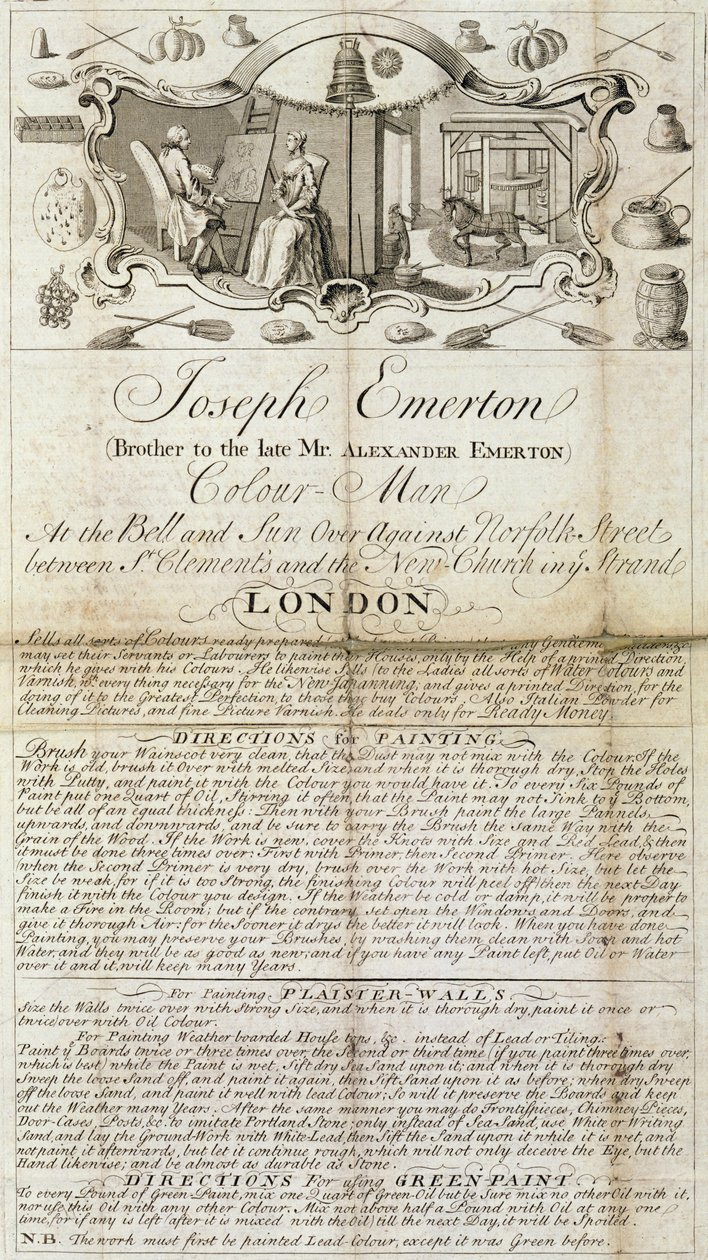 Joseph Emerton
(Brother to the late Mr. ALEXANDER EMERTON)
Colour-Man
At the Bell and Sun Over Against Norfolk-Street
between St. Clement's and the New-Church in ye Strand
LONDON
Sells all sorts of Colours ready prepared any Gentleme
may set their Servants or Labourers to paint their Houses, only by the Help of a printed Direction,
which he gives with his Colours: He likewise Sells (to the Ladies all sorts of Water Colours and
Varnish, wth. every thing necessary for the New Japanning, and gives a printed Direction, for the
doing of it to the Greatest Perfection, to those that buy Colours, Also Italian Powder for
Cleaning Pictures, and fine Picture Varnish. He deals only for Ready Money.
DIRECTIONS for PAINTING.
Brush your Wainscot very clean, that the Dust may not mix with the Colour. If the
Work is old, brush it Over with melted Size, and when it is thorough dry, Stop the Holes
with Putty, and paint it with the Colour you would have it. To every Six Pounds of
Paint put one Quart of Oil, Stirring it often, that the Paint may not Sink to ye Bottom,
but be all of an equal thickness: Then with your Brush paint the large Pannels
upwards, and downwards, and be sure to carry the Brush the Same Way with the
Grain of the Wood. If the Work is new, cover the Knots with Size and Red Lead, & then
it must be done three times over: First with Primer, then Second Primer. Here observe
(when the Second Primer is very dry, brush over the Work with hot Size, but let the
Size be weak, for if it is too Strong, the finishing Colour will peel off) then the next Day
finish it with the Colour you design. If the Weather be cold or damp, it will be proper to
make a Fire in the Room; but if the contrary, set open the Windows and Doors, and
give it thorough Air: for the Sooner it drys the better it will look. When you have done
Painting, you may preserve your Brushes, by washing them clean with Soap and hot
Water, and they will be as good as new: and if you have any Paint left, put Oil or Water
over it and it, will keep many Years.
For Painting PLAISTER-WALLS
Size the Walls twice over with Strong Size, and when it is thorough dry, paint it once or
twice over with Oil Colour.
For Painting Weather boarded House tops, &c. instead of Lead or Tiling.:
Paint ye Boards twice or three times over, the Second or third time (if you paint three times over,
which is best) while the Paint is wet, Sift dry Sea Sand upon it; and when it is thorough dry
Sweep the loose Sand off, and paint it again, then Sift Sand upon it as before; when dry Sweep
off the loose Sand, and paint it well with lead Colour; So will it preserve the Boards and keep
out the Weather many Years. After the same manner you may do Frontispieces, Chimney-Pieces,
Door-Cases, Posts, &c. to imitate Portland Stone; only instead of Sea-Sand, use White or Writing
Sand, and lay the Ground-Work with White-Lead, then Sift the Sand upon it while it is wet, and
not paint it afterwards, but let it continue rough, which will not only deceive the Eye, but the
Hand likewise; and be almost as durable as Stone.
DIRECTIONS For using GREEN-PAINT
To every Pound of Green-Paint, mix one Quart of Green-Oil but be Sure mix no other Oil with it,
nor use this Oil with any other Colour. Mix not above half a Pound with Oil at any one
time, for if any is left (after it is mixed with the Oil) till the next Day, it will be Spoiled.
N.B. The work must first be painted Lead-Colour, except it was Green before.